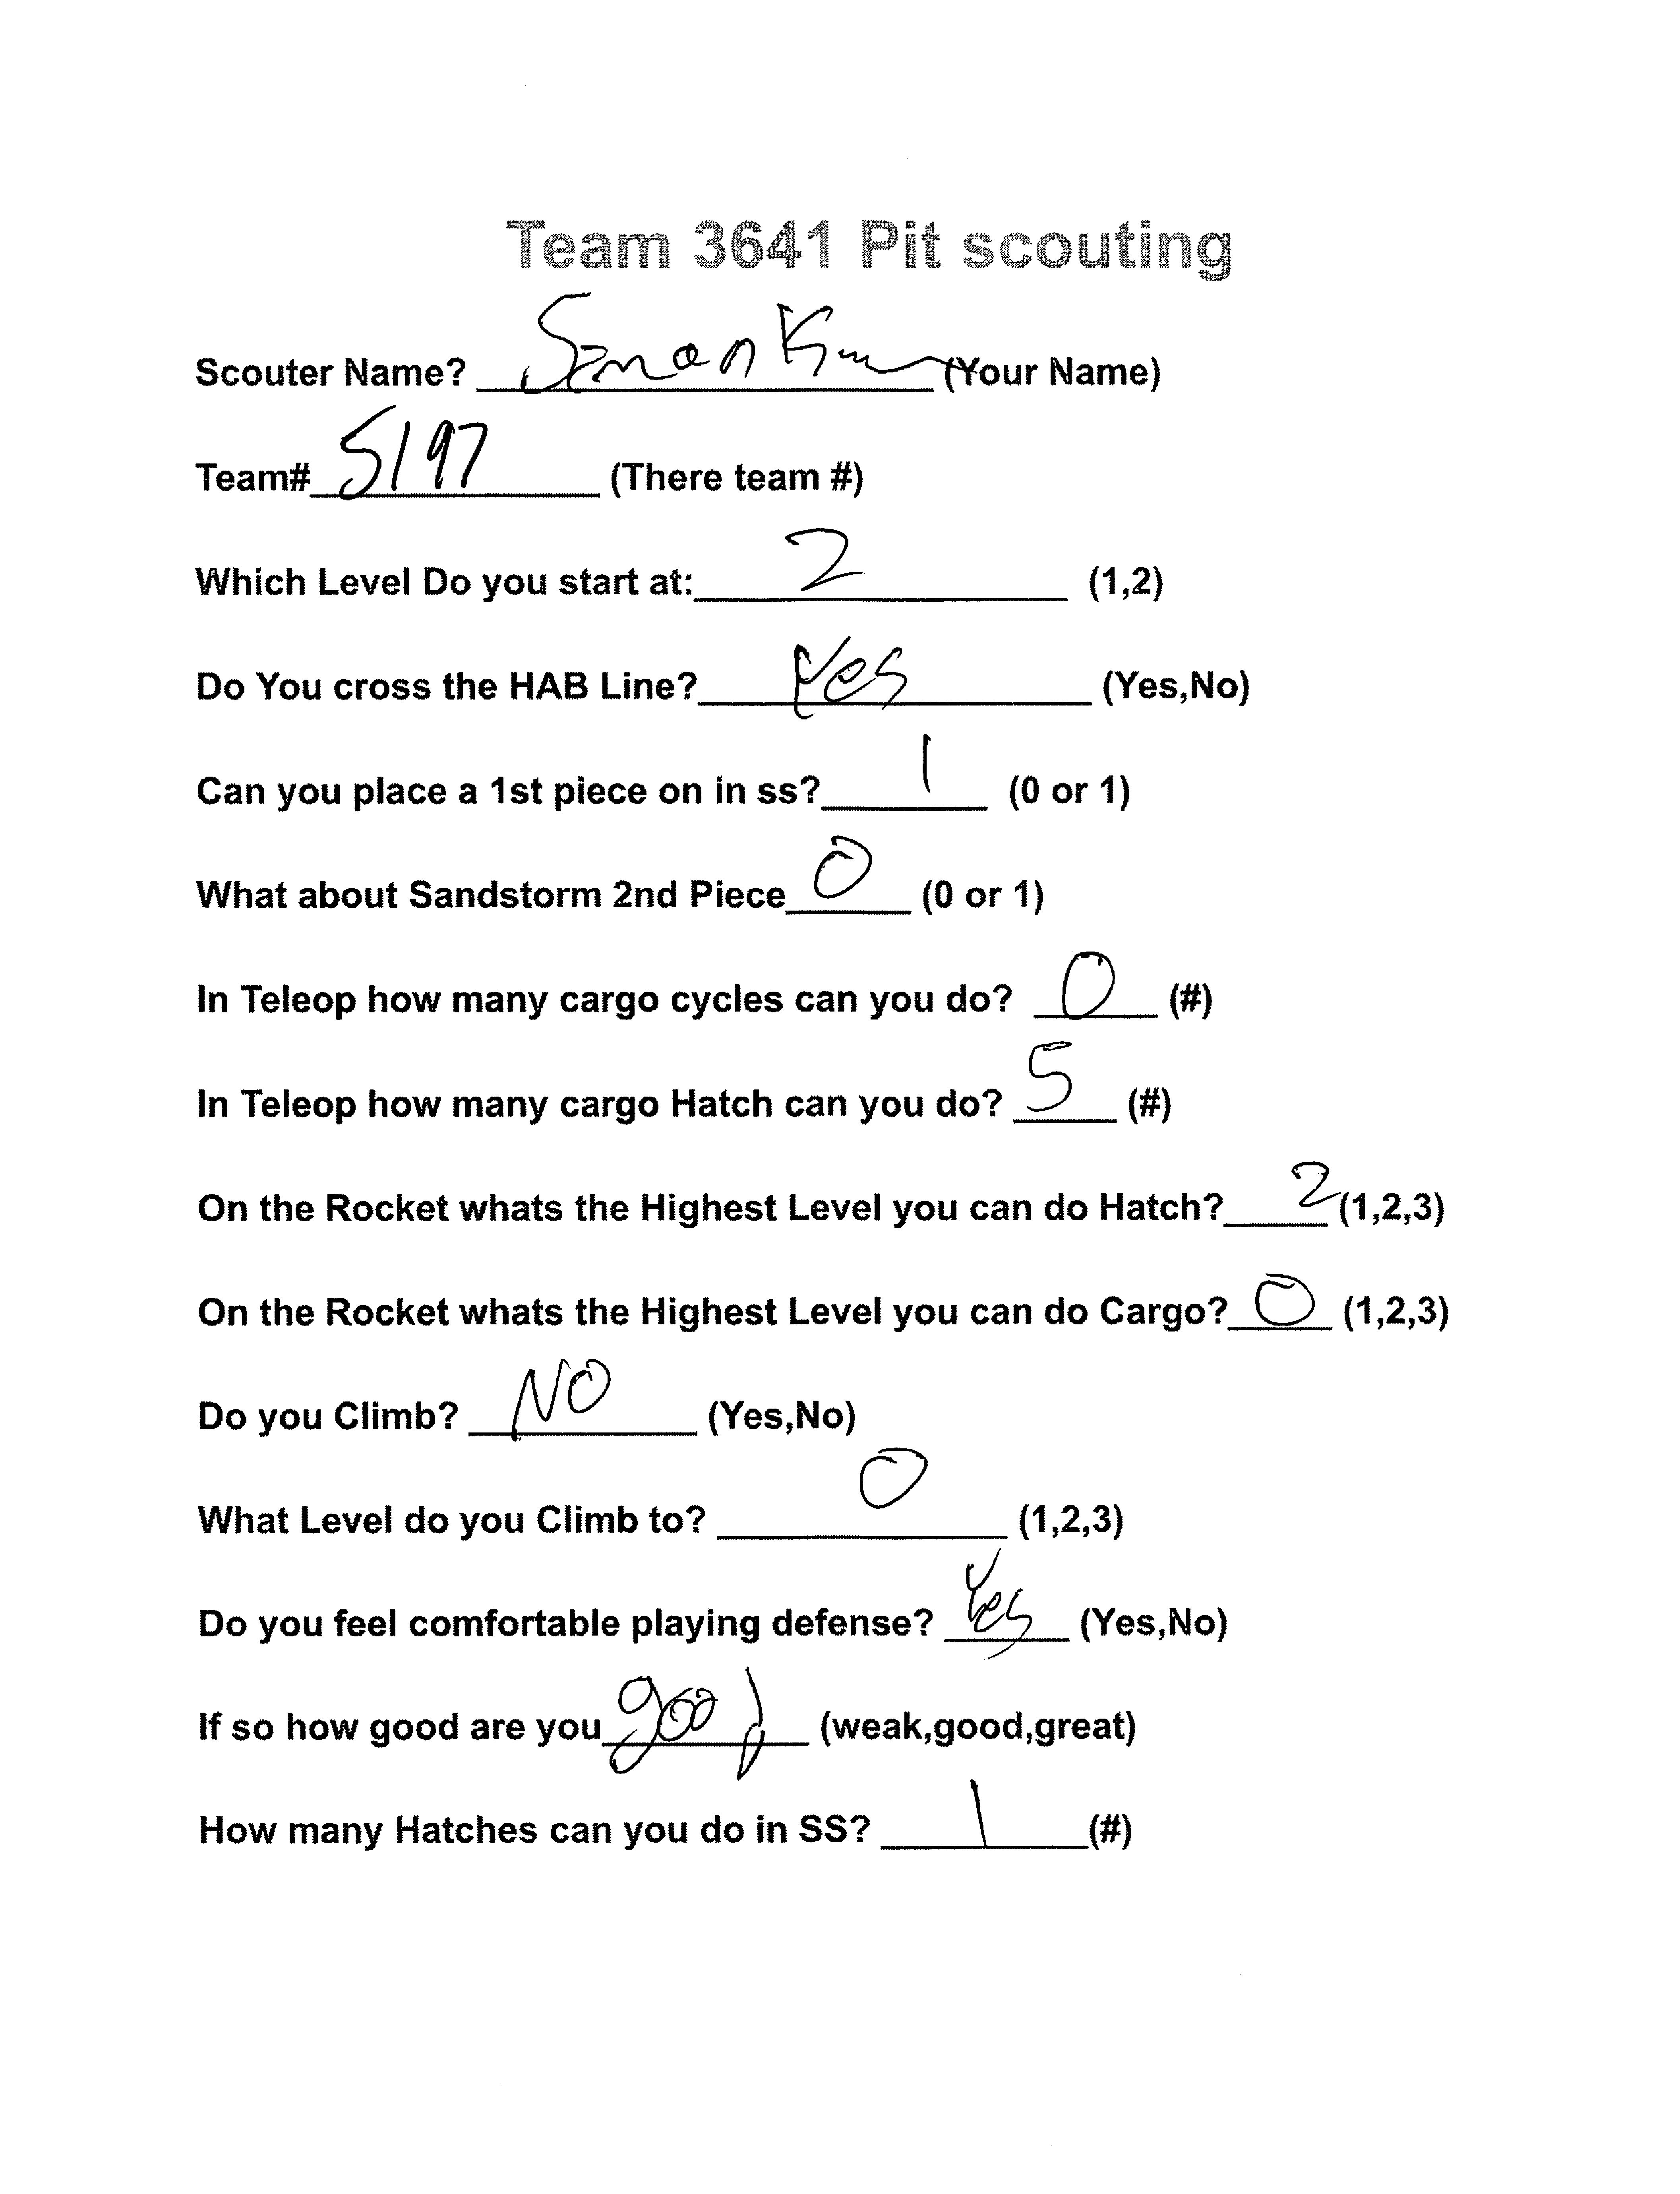 Team 3641 Pit scouting
Scouter Name? (Your Name)
Team# 5197 (There team #)
Which Level Do you start at: 2 (1,2)
Do You cross the HAB Line? Yes (Yes,No)
Can you place a 1st piece on in ss? 1 (0 or 1)
What about Sandstorm 2nd Piece 0 (0 or 1)
In Teleop how many cargo cycles can you do? 0 (#)
In Teleop how many cargo Hatch can you do? 5 (#)
On the Rocket whats the Highest Level you can do Hatch? 2 (1,2,3)
On the Rocket whats the Highest Level you can do Cargo? 0 (1,2,3)
Do you Climb? NO (Yes,No)
What Level do you Climb to? 0 (1,2,3)
Do you feel comfortable playing defense? Yes (Yes,No)
If so how good are you good (weak,good,great)
How many Hatches can you do in SS? 1 (#)